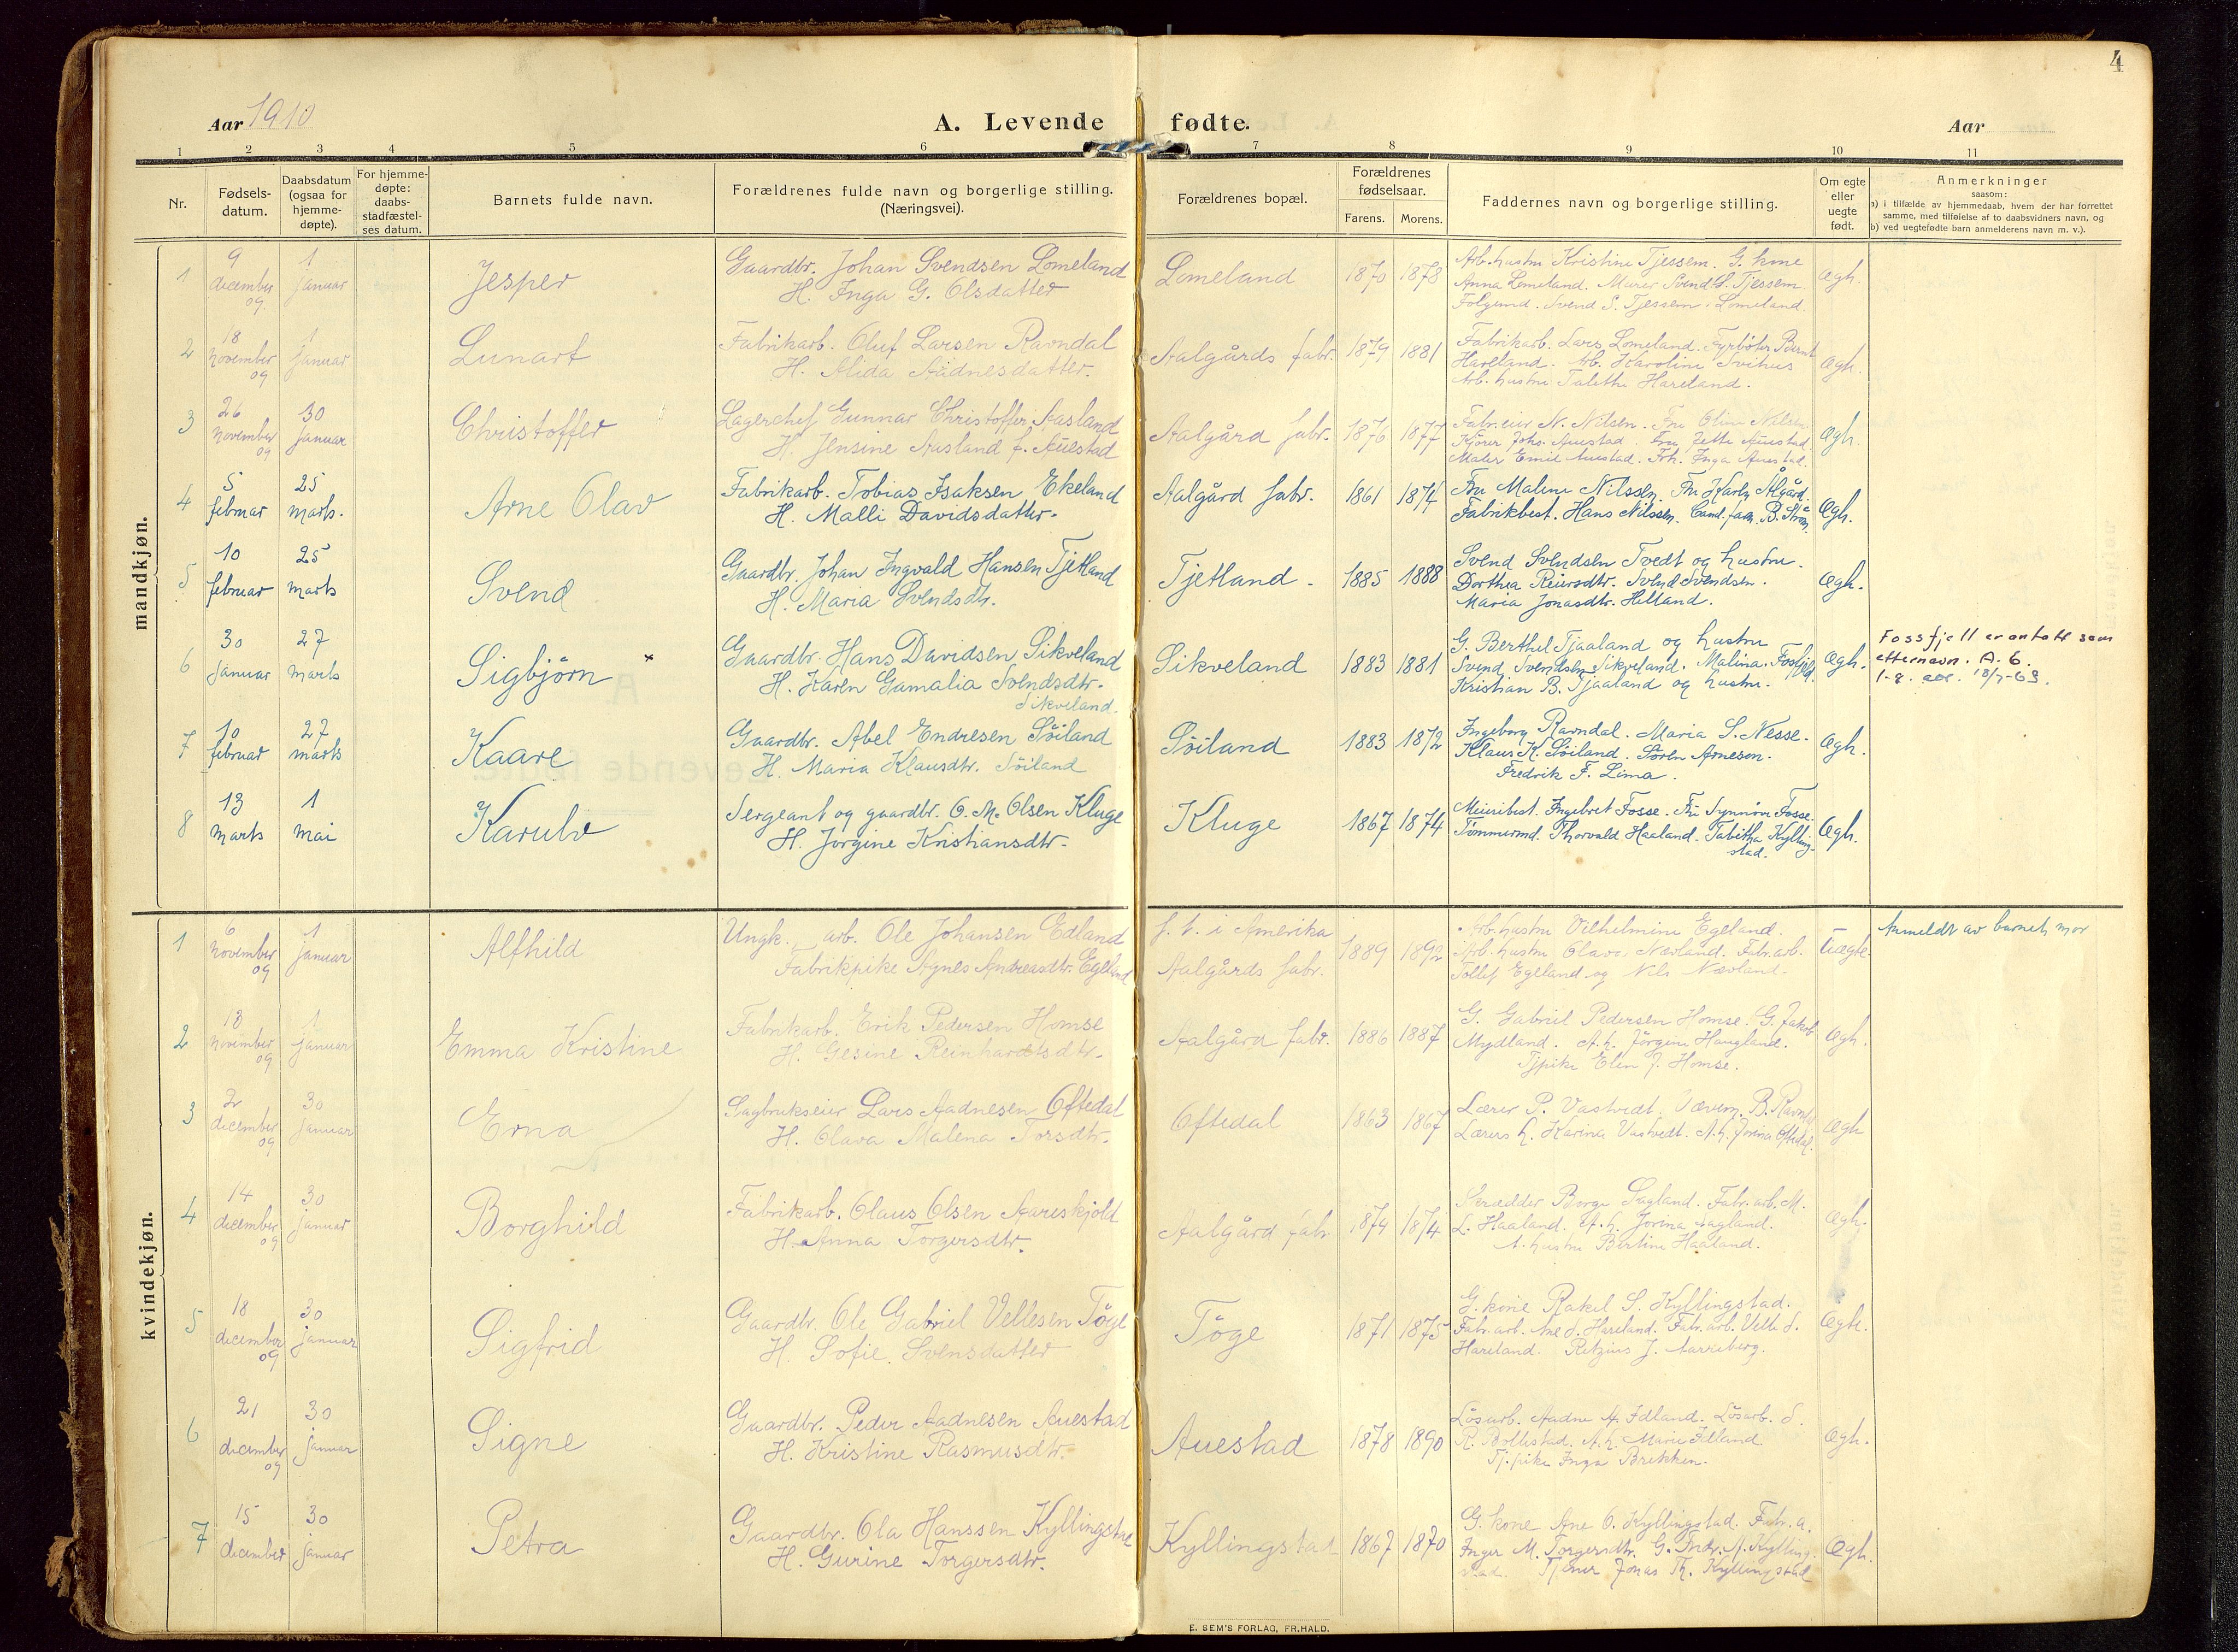 4
Aar 1910
A. Levende fødte.
Aar
1 2 3 4 5 6 7 8 9 10 11
Nr.
Fødsels-
datum.
Daabsdatum
(ogsaa for
hjemme-
døpte).
For hjemme-
døpte:
daabs-
stadfæstel-
ses datum.
Barnets fulde navn.
Forældrenes fulde navn og borgerlige stilling.
(Næringsvei).
Forældrenes bopæl.
Forældrenes
fødselsaar.
Farens. Morens.
Faddernes navn og borgerlige stilling.
Om egte
eller
uegte
født.
Anmerkninger
saasom:
a) i tilfælde av hjemmedaab, hvem der har forrettet
samme, med tilføielse af to daabsvidners navn, og
b) ved uegtefødte barn anmelderens navn m. v.).
mandkjøn.
1
9
december
09
1
januar
Jesper
Gaardbr. Johan Svendsen Lomeland
H. Inga G. Olsdatter
Lomeland
1870 1878
Arb. hustru Kristine Tjessem. G. kone
Anna Lomeland. Murer Svend S. Tjessem.
Folgemd. Svend S. Tjessem. Lomeland.
Ægh.
2
18
november
09
1
januar
Lunart
Fabrikarb. Oluf Larsen Ravndal
H. Alida Aadnesdatter.
Aalgårds fabr.
1879 1881
Fabrikarb. Lars Lomeland. Fyrbøter Bernt
Hareland. Arb. Karoline Svihus
Arb. hustru Talitha Hareland.
Ægh.
3
26
november
09
30
januar
Christoffer
Lagerchef Gunnar Christoffer Aasland
H. Jensine Aasland f. Auestad
Aalgård fabr.
1876 1877
Fabr.eier N. Nilsen. Fru Oline Nilsen
Kjører Johs. Auestad. Fru Jette Auestad.
Maler Emil Auestad. Frk. Inga Auestad.
Ægh.
4
5
februar
25
marts.
Arne Olav
Fabrikarb. Tobias Isaksen Ekeland
H. Malli Davidsdatter.
Aalgård fabr.
1861 1874
Fru Malene Nilssen. Fru Karly Ålgård.
Fabrikbest. Hans Nilssen. Cand. farm. B. Strøm
Ægh.
5
10
februar
25
marts
Svend
Gaardbr. Johan Ingvald Hansen Tjetland
H. Maria Svendsdtr.
Tjetland.
1885 1888
Svend Svendsen Tvedt og hustru.
Dorthea Reiersdtr. Svend Svendsen.
Maria Jonasdtr. Helland.
Ægh.
6
30
januar
27
marts
Sigbjørn ×
Gaardbr. Hans Davidsen Sikveland
H. Karen Gamalia Svendsdtr.
Sikveland.
Sikveland
1883 1881
G. Berthel Tjaaland og hustru
Svend Svendsen Sikveland. Malina Fosfjeld.
Kristian B. Tjaaland og hustru.
Ægh.
Fossfjell er antatt som
etternavn. A. 6.
18/7-63.
7
10
februar
27
marts
Kaare
Gaardbr. Abel Endresen Søiland
H. Maria Klausdtr. Søiland
Søiland
1883 1872
Ingeborg Ravndal. Maria S. Nesse.
Klaus K. Søiland. Søren Arnesen.
Fredrik F. Lima.
Ægh.
8
13
marts
1
mai
Karulv
Sergeant og gaardbr. O. M. Olsen Kluge
H. Jorgine Kristiansdtr.
Kluge
1867 1874
Meieribest. Ingebret Fosse. Fru Synnøve Fosse.
Tømmermd. Thorvald Haaland. Tabitha Kylling-
stad.
Ægh.
kvindekjøn.
1
6
november
09
1
januar
Alfhild
Ungk. arb. Ole Johansen Edland
Fabrikpike Agnes Andreasdtr. Egeland
f. t. i Amerika
Aalgårds fabr.
1889 1892
Arb. hustru Vilhelmine Egeland.
Arb. hustru Olava Nævland. Fabr.arb.
Tollef Egeland og Nils Nævland.
Uægte.
Anmeldt av barnets mor
2
13
november
09
1
januar
Emma Kristine
Fabrikarb. Erik Pedersen Homse
H. Gesine Reinhardtsdtr.
Aalgård fabr.
1886 1887
G. Gabriel Pedersen Homse. G. Jakob
Mydland. A. h. Jørgine Haugland.
Tjpike Elen J. Homse.
Ægh.
3
2
december
09
30
januar
Erna
Sagbrukseier Lars Aadnesen Oftedal
H. Olava Malena Torsdtr.
Oftedal
1863 1867
Lærer P. Vastvedt. Vævem. B. Ravndal
Lærers h. Karina Vastvedt. A. h. Jorina Oftedal.
Ægh
4
14
december
09
30
januar
Borghild
Fabrikarb. Olaus Olsen Aareskjold
H. Anna Torgersdtr.
Aalgård fabr.
1874 1874
Skrædder Borge Sagland. Fabr.arb. M.
L. Haaland. A. h. Jorina Sagland.
A. hustru Bertine Haaland.
Ægh.
5
18
december
09
30
januar
Sigfrid
Gaardbr. Ole Gabriel Vellesen Tøge
H. Sofie Svensdatter
Tøge
1871 1875
G. kone Rakel S. Kyllingstad.
Fabr.arb. Ane S. Hareland. Fabr.arb. Velle S.
Hareland. Retzius J. Aarreberg.
Ægh.
6
21
december
09
30
januar
Signe
Gaardbr. Peder Aadnesen Auestad
H. Kristine Rasmusdtr.
Auestad
1878 1890
Løsarb. Aadne A. Idland. Løsarb. S.
R. Bollestad. A. h. Marie Idland
Tj.pike Inga Brekken.
Ægh.
7
15
december
30
januar
Petra
Gaardbr. Ola Hanssen Kyllingstad
H. Gurine Torgersdtr.
Kyllingstad
1867 1870
G. kone Ane O. Kyllingstad. Fabr. a.
Inger M. Torgersdtr. G. Andr. A. Kylling-
stad. Tjener Jonas Th. Kyllingstad
Ægh.
E. SEM'S FORLAG, FR.HALD.